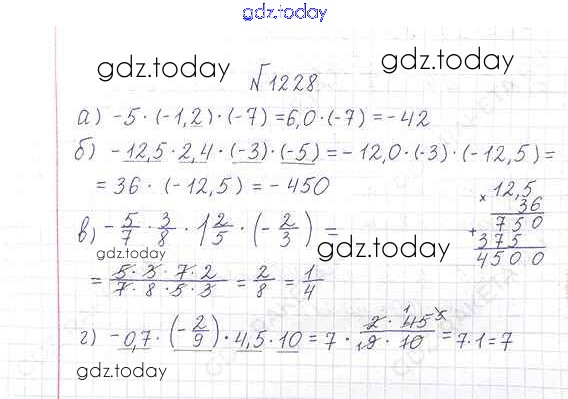 gdz.today
gdz.today
gdz.today
№1228.
а) -5 · (-1,2) · (-7) = 6,0 · (-7) = -42
б) -12,5 · 2,4 · (-3) · (-5) = -12,0 · (-3) · (-12,5) =
= 36 · (-12,5) = -450
× 12,5
36
750
+ 375
4500
в) -5/7 · 3/8 · 1 2/5 · (-2/3) =
gdz.today
gdz.today
= 5·3·7·2/7·8·5·3 = 2/8 = 1/4
г) -0,7 · (-2/9) · 4,5 · 10 = 7 · 2 · 45 5 1/1 9 · 10 = 7·1 = 7
gdz.today